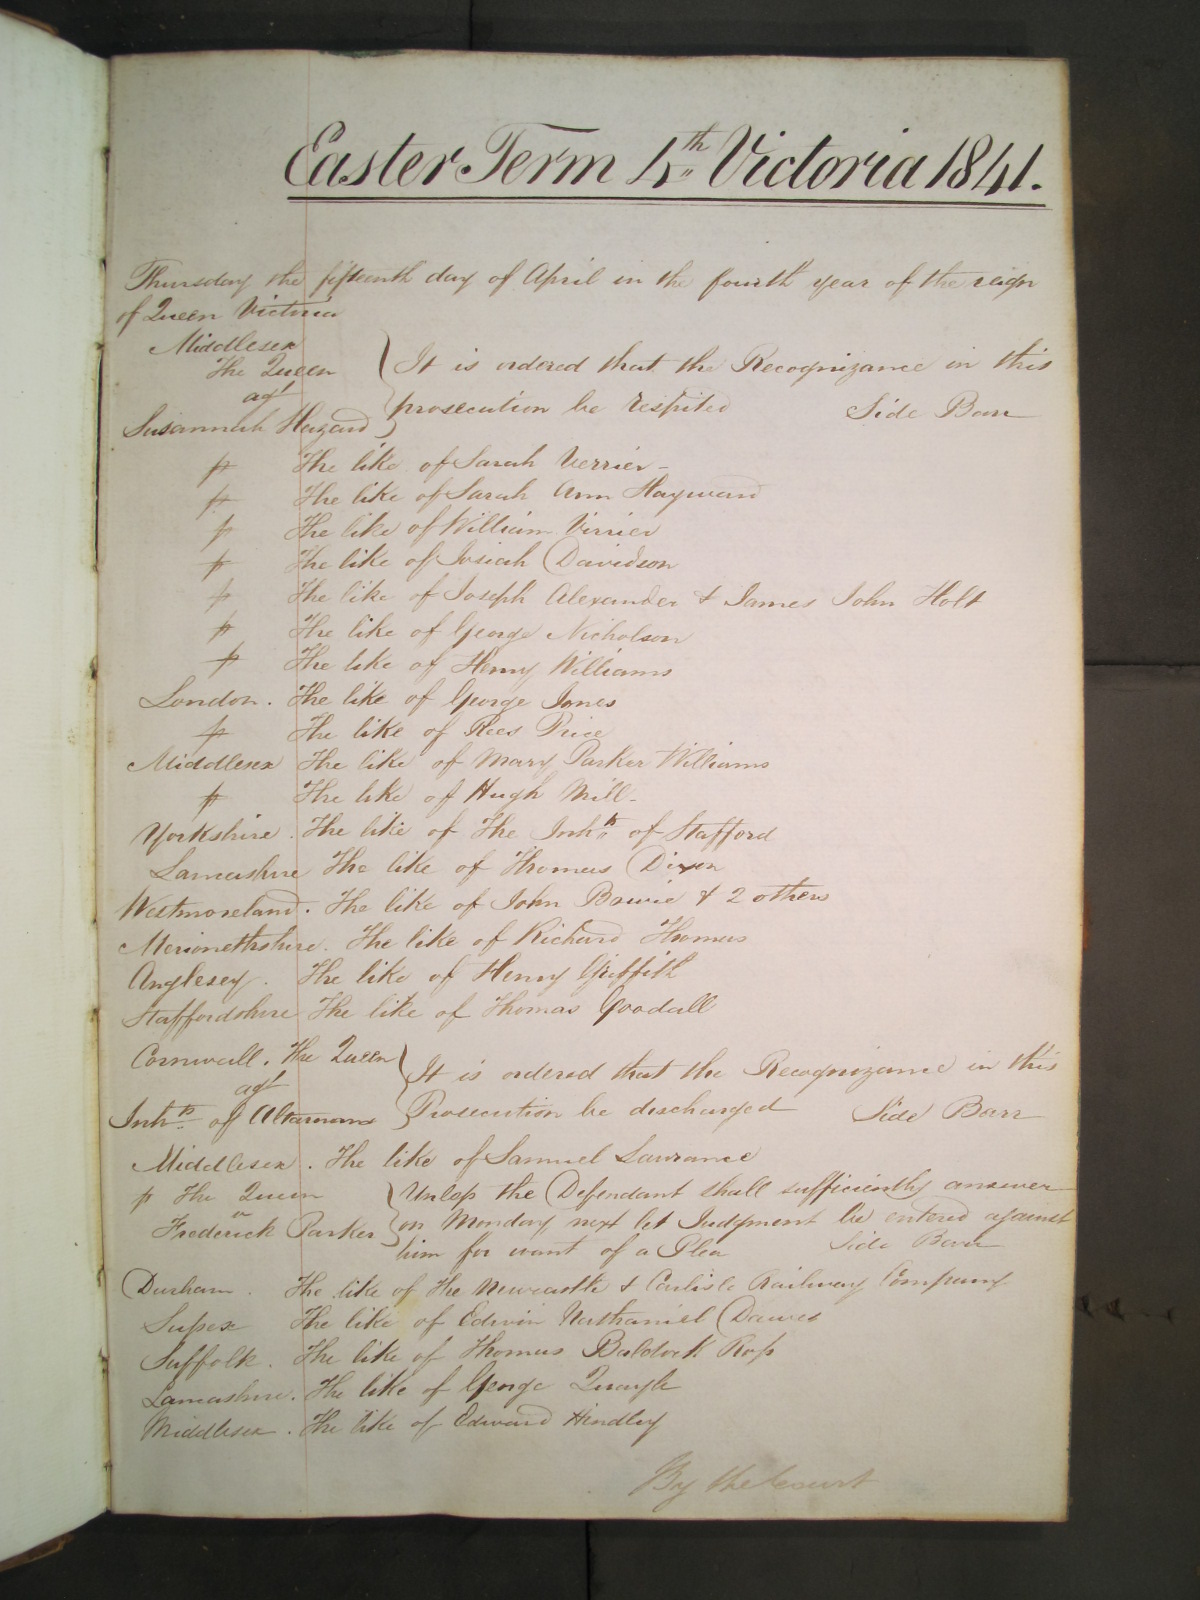 Easter Term 4th Victoria 1841.
Thursday the fifteenth day of April in the fourth year of the reign
of Queen Victoria
Middlesex
The Queen
agt
Susannah Hazard
It is ordered that the Recognizance in this
prosecution be respited Side Barr
The like of Sarah Verrier
The like of Sarah Ann Hayward
The like of William Virrier
The like of Josiah Davidson
The like of Joseph Alexander & James John Holt
The like of George Nicholson
The like of Henry Williams
London. The like of George Jones
The like of Rees Price
Middlesex The like of Mary Parker Williams
The like of Hugh Mill
Yorkshire. The like of The Inhts of Stafford
Lancashire The like of Thomas Dixon
Westmoreland. The like of John Bowie & 2 others
Merionethshire. The like of Richard Thomas
Anglesey. The like of Henry Griffith
Staffordshire The like of Thomas Goodall
Cornwall. The Queen
agt
Inhts of Altarnans
It is ordered that the Recognizance in this
Prosecution be discharged Side Barr
Middlesex. The like of Samuel Lawrance
The Queen
Frederick Parker
Unless the Defendant shall sufficiently answer
on Monday next let Judgment be entered against
him for want of a Plea Side Barr
Durham. The like of The Newcastle & Carlisle Railway Company
Sussex The like of Edwin Nathaniel Dawes
Suffolk. The like of Thomas Baldock Ross
Lancashire. The like of George Quayle
Middlesex. The like of Edward Hindley
By the Court